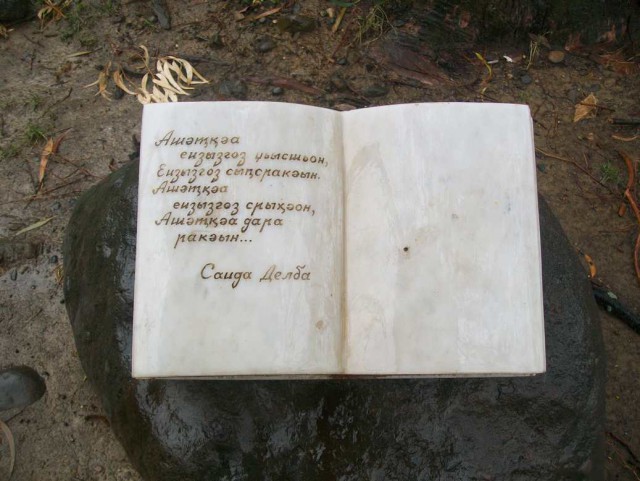 Ашәҭқәа
еизызгоз уысшьон,
Еизызгоз сыԥсракәын.
Ашәҭқәа
еизызгоз срыҳәон,
Ашәҭқәа дара
ракәын...
Саида Делба